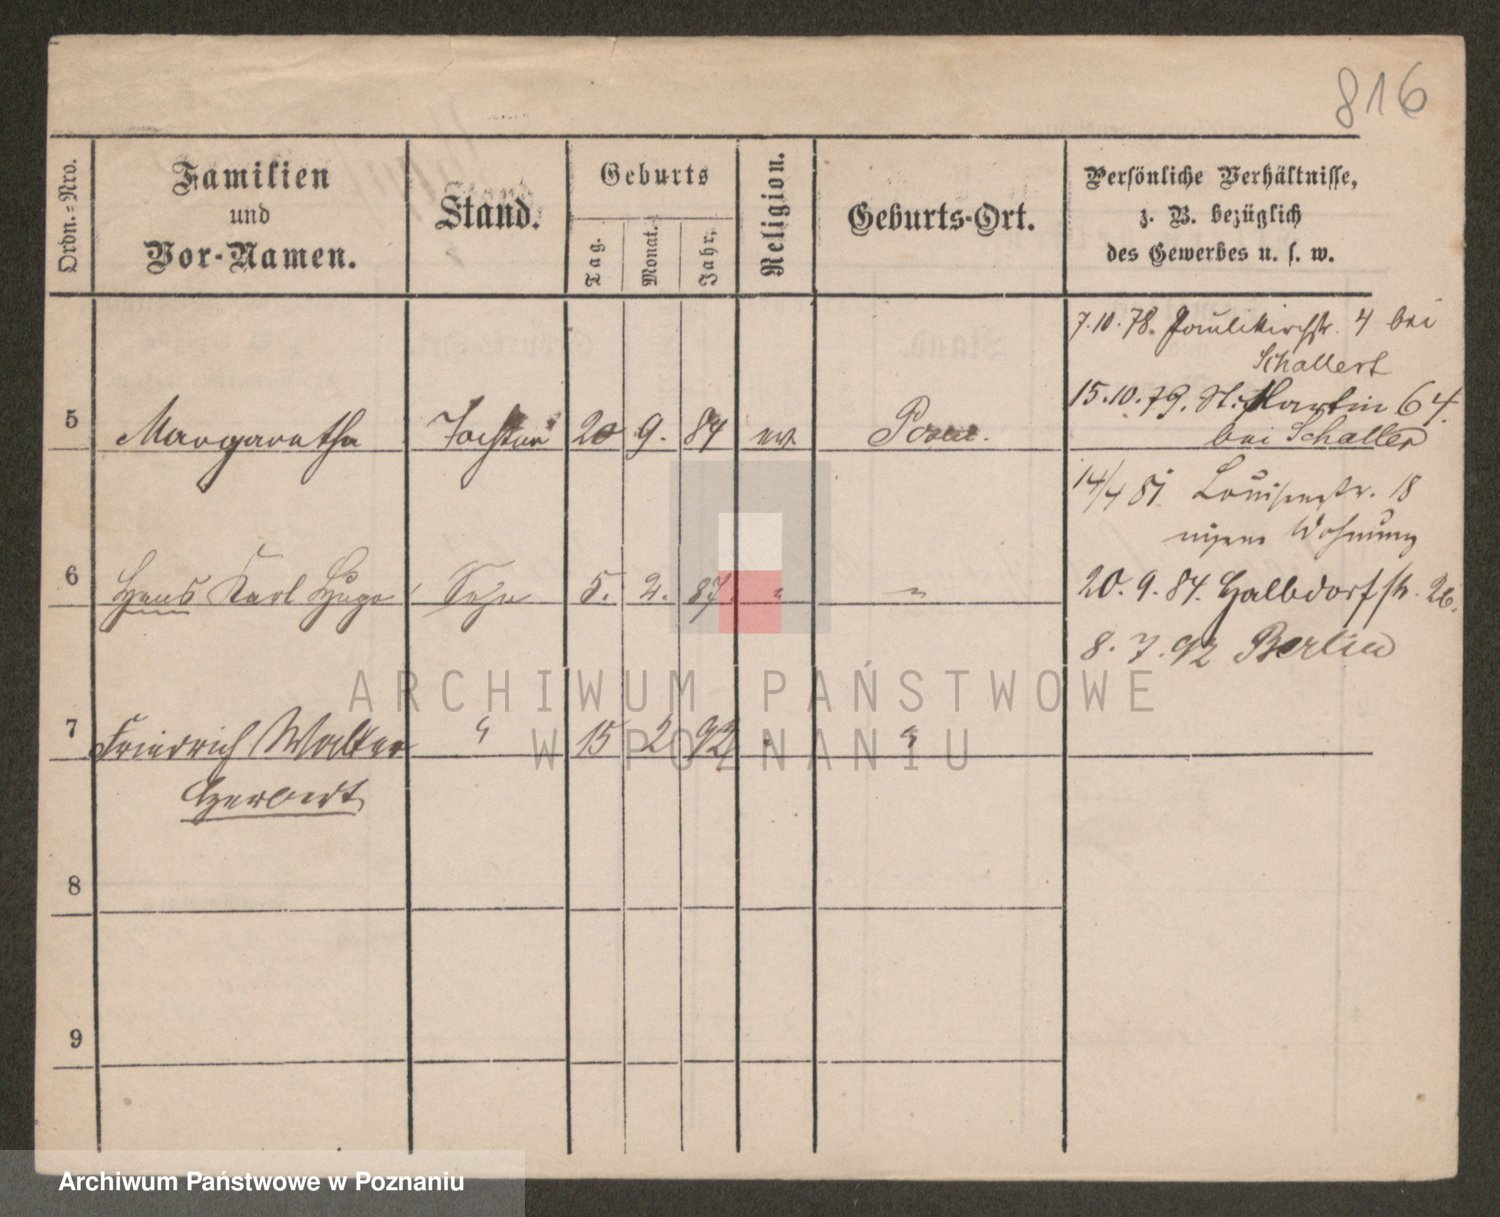 816
Ordn.-Nro.
Familien
und
Vor-Namen.
Stand.
Geburts
Tag.
Monat.
Jahr.
Religion.
Geburts-Ort.
Persönliche Verhältnisse,
z. B. bezüglich
des Gewerbes u. s. w.
7.10.78. Paulikirchstr. 4 bei
Schallert
15.10.79. St. Martin 64.
bei Schaller
5 Margarethe Tochter 20 9. 84 ev. Posen.
14/4 81 Louisenstr. 18
eigene Wohnung
6 Hans Karl Hugo Sohn 5. 2. 87. " "
20. 9. 84. Halbdorfstr. 26.
8. 7. 92 Berlin
7 Friedrich Walter " 15 2 92 " "
Herbert
8
9
ARCHIWUM PAŃSTWOWE
W POZNANIU
Archiwum Państwowe w Poznaniu